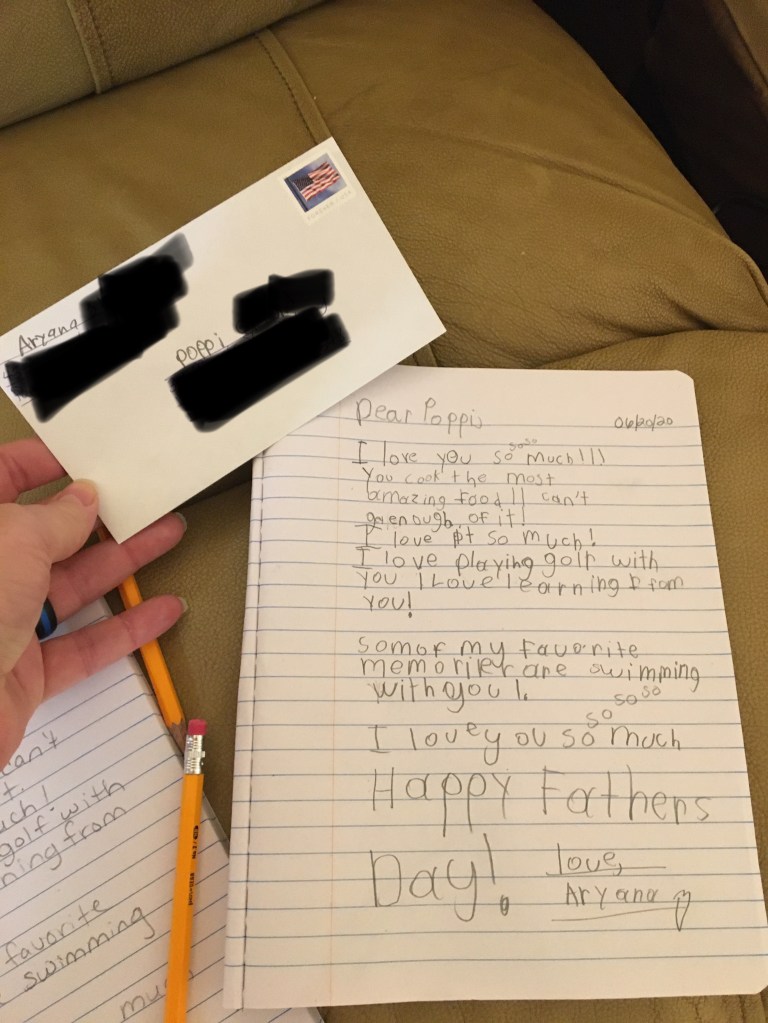 Aryana
poppi
Dear Poppi
06/20/20
I love you so so so much!!!
You cook the most
amazing food!! can't
enough, of it!
I love pt so much!
I love playing golf with
you I Love learning from
you!
somof my favorite
are swimming
with you!.
so so
so
I love you so much
Happy Fathers
Day!
love,
Aryana
can't
t.
uch!
golf with
ning from
favorite
swimming
muc